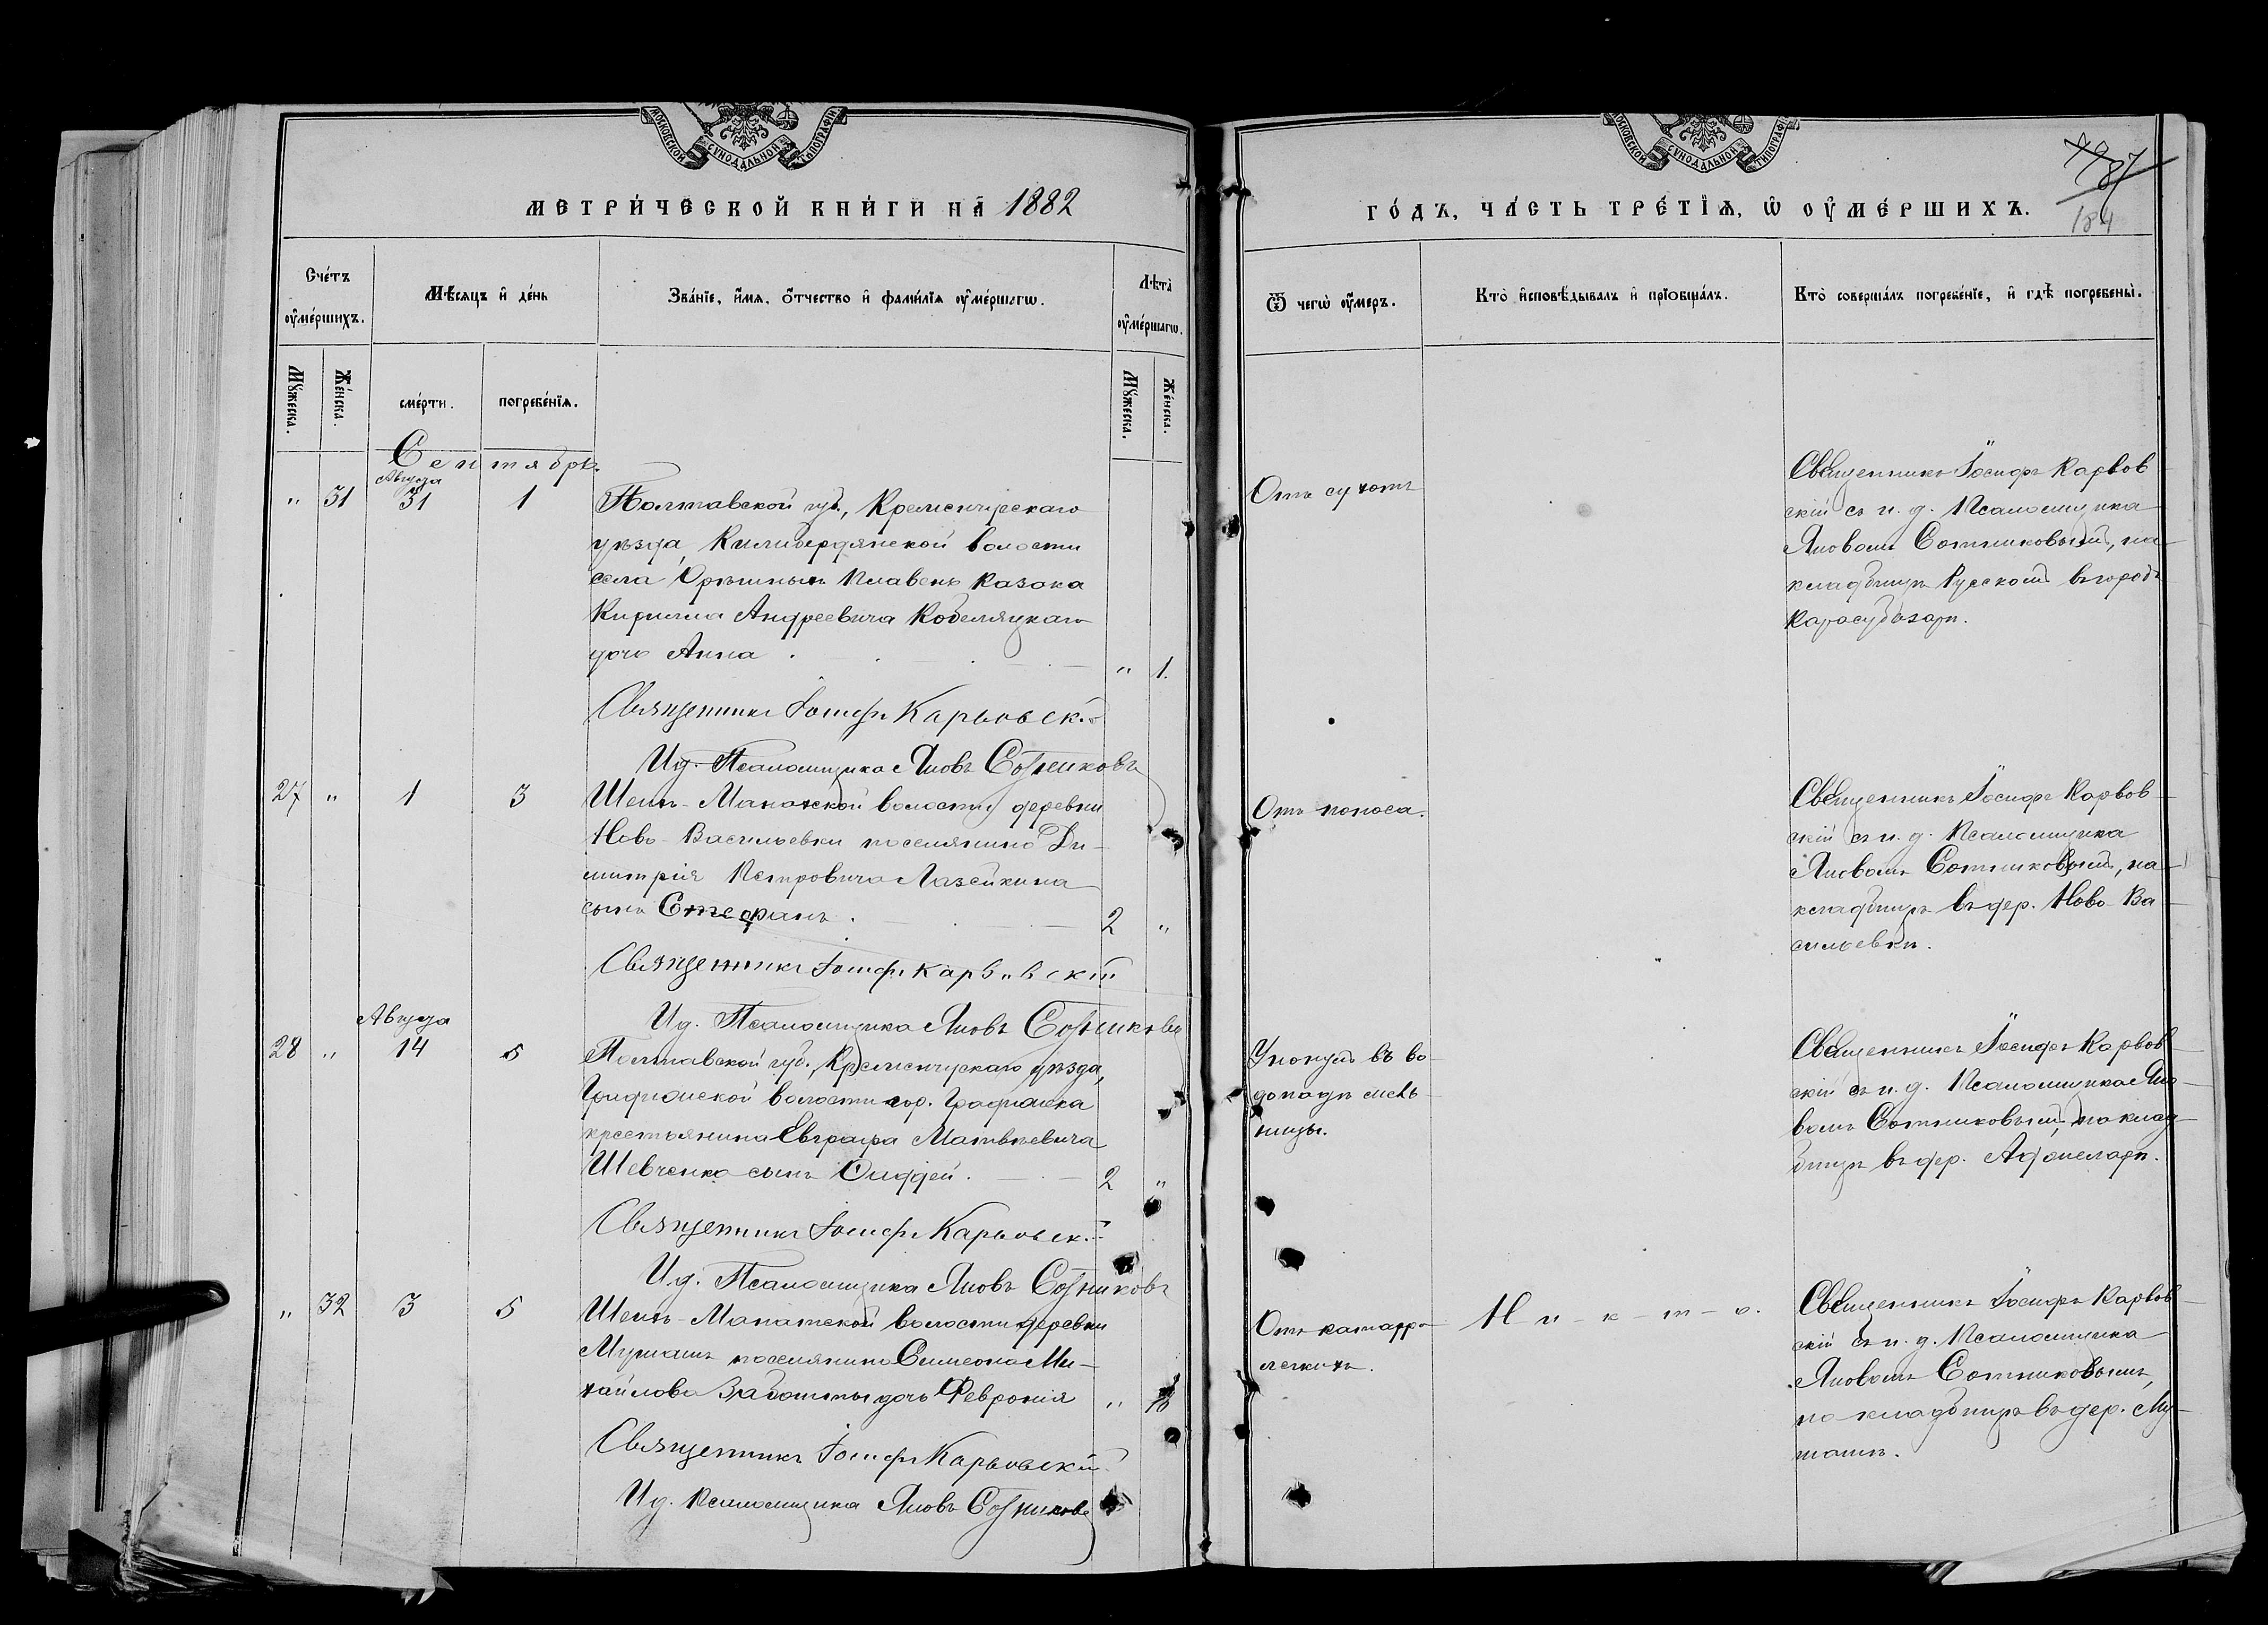 МОСКОВСКОЙ СѴНОДАЛЬНОЙ ТѴПОГРАФІИ.
МЕТРИ́ЧЕСКОЙ КНИ́ГИ НА̀ 1882
Сче́тъ ᲂу҆ме́ршихъ.
Мѣ́сяцъ и҆ де́нь
Зва́нїе, и҆́мя, о҆́тчество и҆ фами́лїя ᲂу҆ме́ршагѡ.
Лѣта̀ ᲂу҆ме́ршагѡ.
Мꙋ́жеска.
Же́нска.
сме́рти.
погребе́нїя.
Мꙋ́жеска.
Же́нска.
Сентябрь.
Августа
" 31 31 1 Полтавской губ., Кременчугскаго
уѣзда, Килибердянской волости
села Орѣшныхъ Плавень казака
Кирилла Андреевича Кобеляцкаго
дочь Анна " 1.
Священникъ Іосифъ Карвовскій
И.д. Псаломщика Яковъ Сотниковъ
27 " 1 3 Шейхъ-Манайской волости деревни
Ново-Васильевки поселянина Ди-
митрія Петровича Лазейкина
сынъ Стефанъ. 2 "
Священникъ Іосифъ Карвовскій
И.д. Псаломщика Яковъ Сотниковъ
Августа
28 " 14 5 Полтавской губ., Кременчугскаго уѣзда,
волости гор.
крестьянина Евграфа Матвѣевича
Шевченко сынъ 2 "
Священникъ Іосифъ Карвовскій
И.д. Псаломщика Яковъ Сотниковъ
" 32 3 5 Шейхъ-Манайской волости деревни
поселянина Симеона Ми-
хайлова дочь Февронія "
Священникъ Іосифъ Карвовскій
И.д. Псаломщика Яковъ Сотниковъ
МОСКОВСКОЙ СѴНОДАЛЬНОЙ ТИПОГРАФІИ.
ГО́ДЪ, ЧА́СТЬ ТРЕ́ТЇѦ, Ѡ҆ ОУ҆МЕ́РШИХЪ.
184
Ѿ чегѡ̀ ᲂу҆́меръ.
Кто̀ и҆сповѣ́дывалъ и҆ прїобща́лъ.
Кто̀ соверша́лъ погребе́нїе, и҆ гдѣ̀ погребены̀.
Отъ сухотъ
Священникъ Іосифъ Карвов-
скій съ и. д. Псаломщика
Яковомъ Сотниковымъ, на
кладбищѣ Русскомъ въ городѣ
Карасубазарѣ.
Отъ поноса.
Священникъ Іосифъ Карвов-
скій съ и. д. Псаломщика
Яковомъ Сотниковымъ, на
кладбищѣ въ дер. Ново-Ва-
сильевкѣ.
Утонулъ въ во-
допадѣ мель-
ницы.
Священникъ Іосифъ Карвов-
скій съ и. д. Псаломщика Яко-
вомъ Сотниковымъ, на клад-
бищѣ въ дер.
Отъ катарра
легкихъ.
Н-и-к-т-о.
Священникъ Іосифъ Карвов-
скій съ и. д. Псаломщика
Яковомъ Сотниковымъ,
на кладбищѣ въ дер.